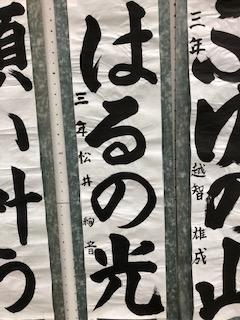 ゆの山
三年 越智 雄成
はるの光
三年 松井 絢音
願い叶う